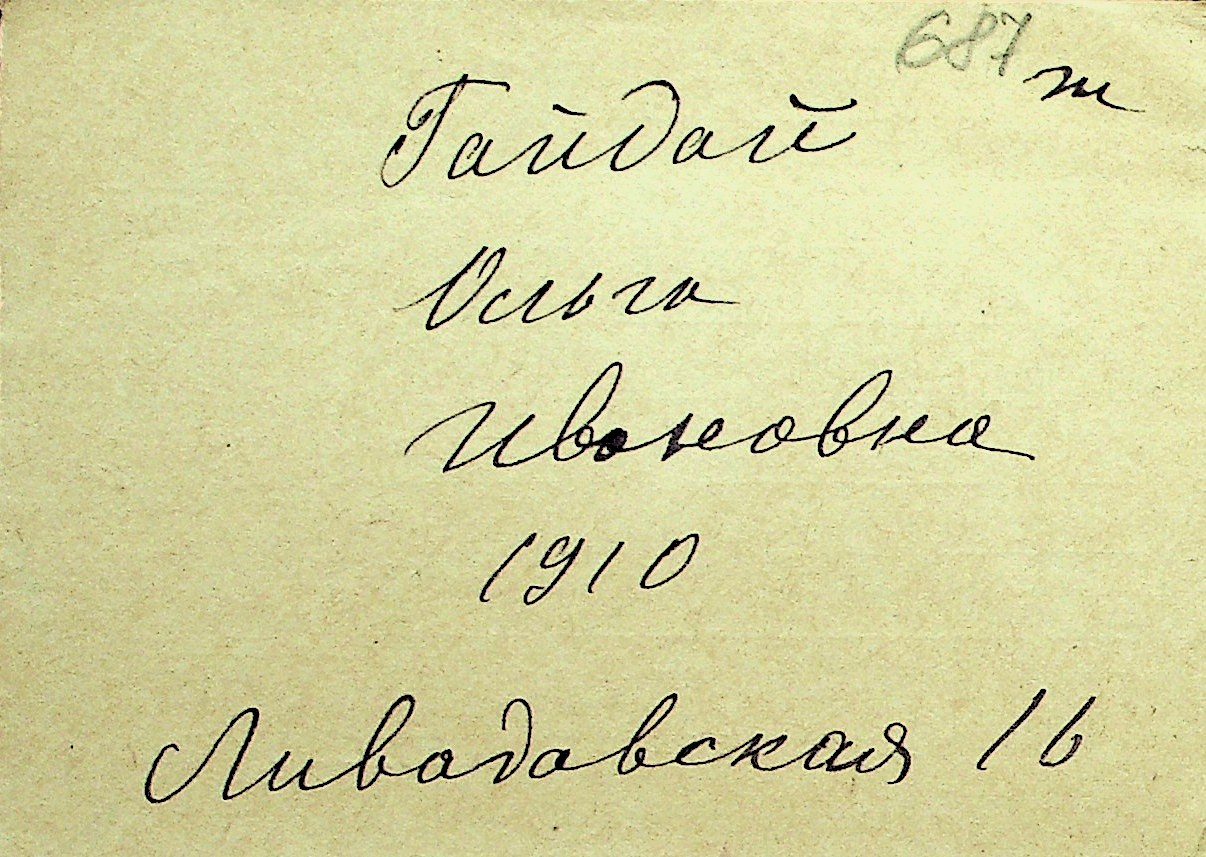 687 т
Гайдай
Ольга
Ивановна
1910
Ливадовская 16